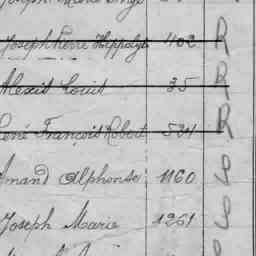 Joseph Pierre Hippolyte 1102 R
Alexis Louis 35 R
René François Robert 534 R
Amand Alphonse 1160 S
Joseph Marie 1251 S